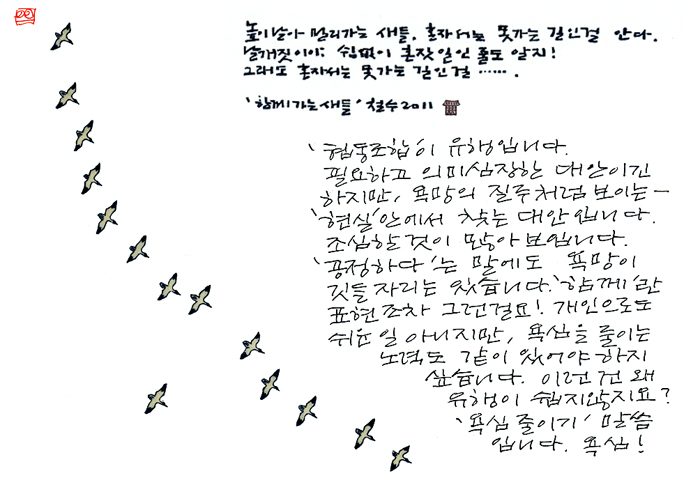 높이 날아 멀리가는 새들. 혼자서는 못가는 길인걸 안다.
날개짓이야 쉼없이 혼잣일인 줄도 알지!
그래도 혼자서는 못가는 길인걸 …… .
'함께 가는 새들' 철수 2011
'협동조합'이 유행입니다.
필요하고 의미심장한 대안이긴
하지만, 욕망의 질주처럼 보이는 -
'현실'안에서 찾는 대안입니다.
조심할 것이 많아 보입니다.
'공정하다'는 말에도 욕망이
깃들 자리는 있습니다. '함께'란
표현조차 그런걸요! 개인으로도
쉬운 일 아니지만, 욕심을 줄이는
노력도 같이 있어야 하지
싶습니다. 이런건 왜
유행이 쉽지않지요?
'욕심 줄이기' 말씀
입니다. 욕심!